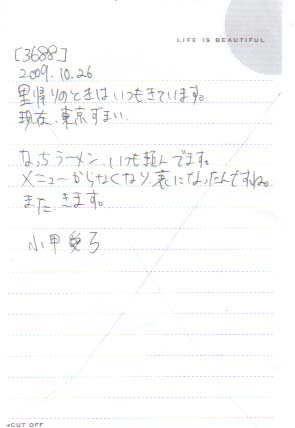 LIFE IS BEAUTIFUL
[3688]
2009.10.26
里帰りのときはいつもきています。
現在、東京ずまい
なっちラーメン、いつも頼んでます。
メニューからなくなり、裏になったんですね。
また、きます。
CUT OFF